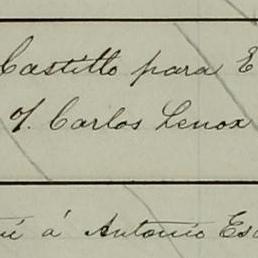 Castillo para E
J. Carlos Lenox
é á Antonio Es